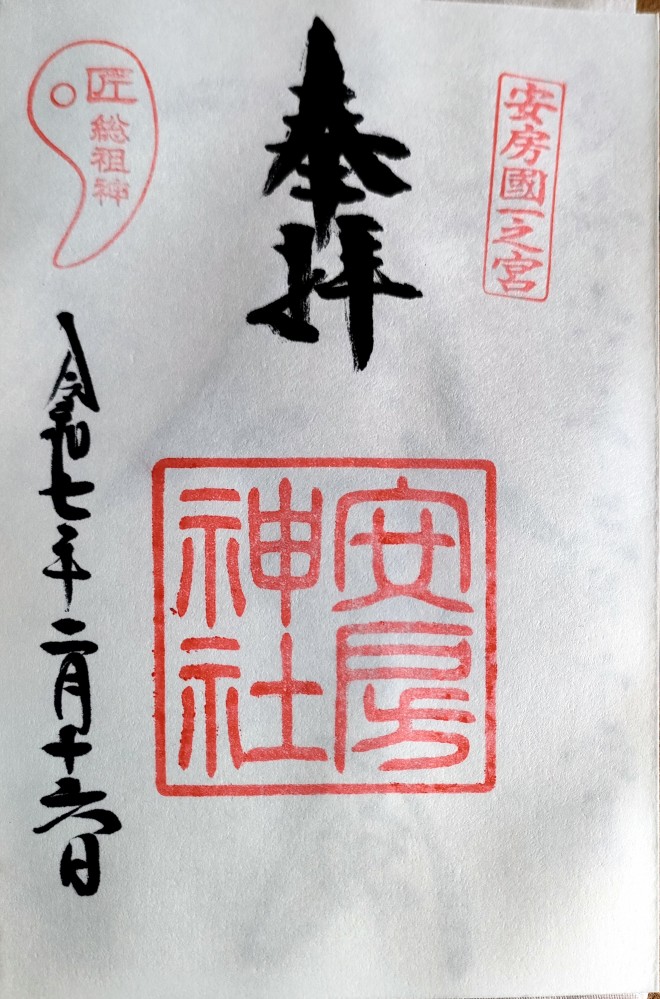 安房國一之宮
奉拝
安房
神社
匠
総祖神
令和七年二月十六日